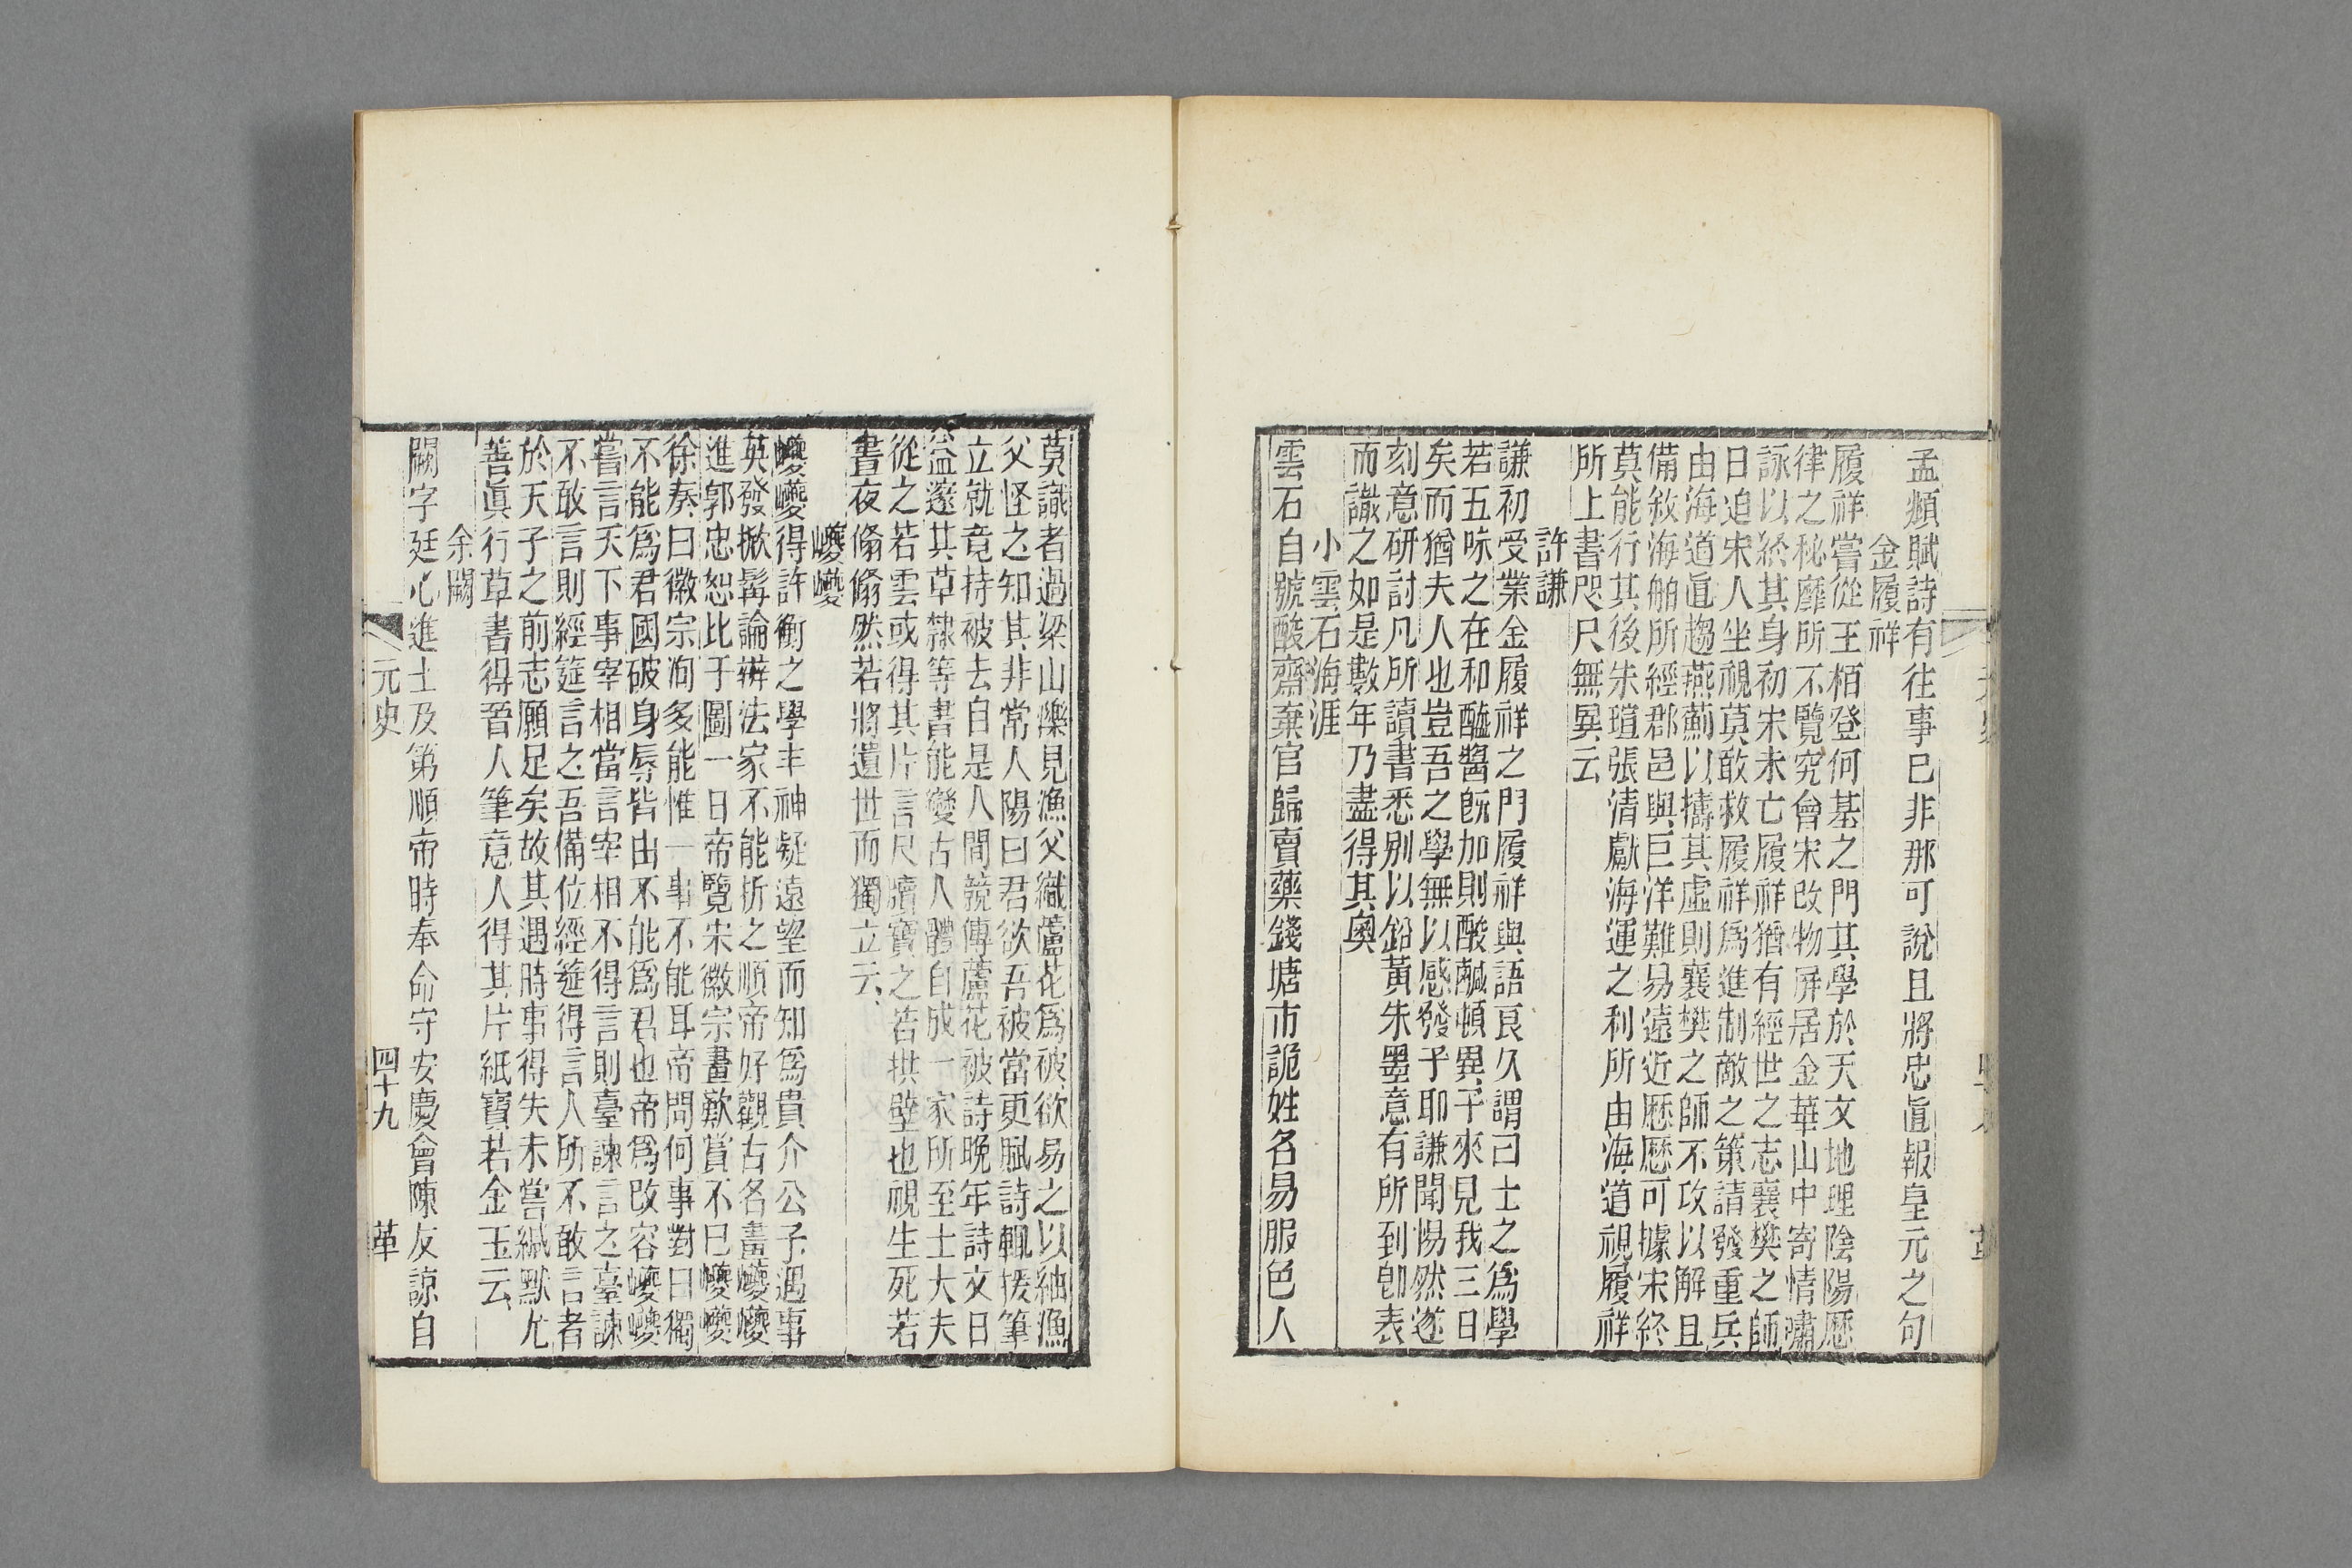 孟頫賦詩有往事已非那可說且將忠直報皇元之句
金履祥
履祥嘗從王栢登何基之門其學於天文地理陰陽曆
律之秘靡所不覽究會宋改物屏居金華山中寄情嘯
詠以終其身初宋未亡履祥猶有經世之志襄樊之師
日迫宋人坐視莫敢救履祥爲進制敵之策請發重兵
由海道直趨燕薊以擣其虛則襄樊之師不攻以解且
備敘海舶所經郡邑與巨洋難易遠近歷歷可據宋終
莫能行其後朱瑄張清獻海運之利所由海道視履祥
所上書咫尺無異云
許謙
謙初受業金履祥之門履祥與語良久謂曰士之爲學
若五味之在和醢醬旣加則酸鹹頓異子來見我三日
矣而猶夫人也豈吾之學無以感發子耶謙聞惕然遂
刻意研討凡所讀書悉別以鉛黃朱墨意有所到卽表
而識之如是數年乃盡得其奧
小雲石海涯
雲石自號酸齋棄官歸賣藥錢塘市詭姓名易服色人
莫識者過梁山濼見漁父織蘆花爲被欲易之以紬漁
父怪之知其非常人陽曰君欲吾被當更賦詩輒援筆
立就竟持被去自是人間競傳蘆花被詩晚年詩文日
益邃其草隸等書能變古人體自成一家所至士大夫
從之若雲或得其片言尺牘寶之若拱璧也視生死若
晝夜翛翛然若將遺世而獨立云
巙巙
巙巙得許衡之學丰神凝遠望而知爲貴介公子遇事
英發掀髯論辨法家不能折之順帝好觀古名畫巙巙
進郭忠恕比干圖一日帝覽宋徽宗畫歎賞不已巙巙
徐奏曰徽宗洵多能惟一事不能耳帝問何事對曰獨
不能爲君國破身辱皆由不能爲君也帝爲改容巙巙
嘗言天下事宰相當言宰相不得言則臺諫言之臺諫
不敢言則經筵言之吾備位經筵得言人所不敢言者
於天子之前志願足矣故其遇時事得失未嘗緘默尤
善眞行草書得晉人筆意人得其片紙寶若金玉云
余闕
闕字廷心進士及第順帝時奉命守安慶會陳友諒自
元史
四十九
革